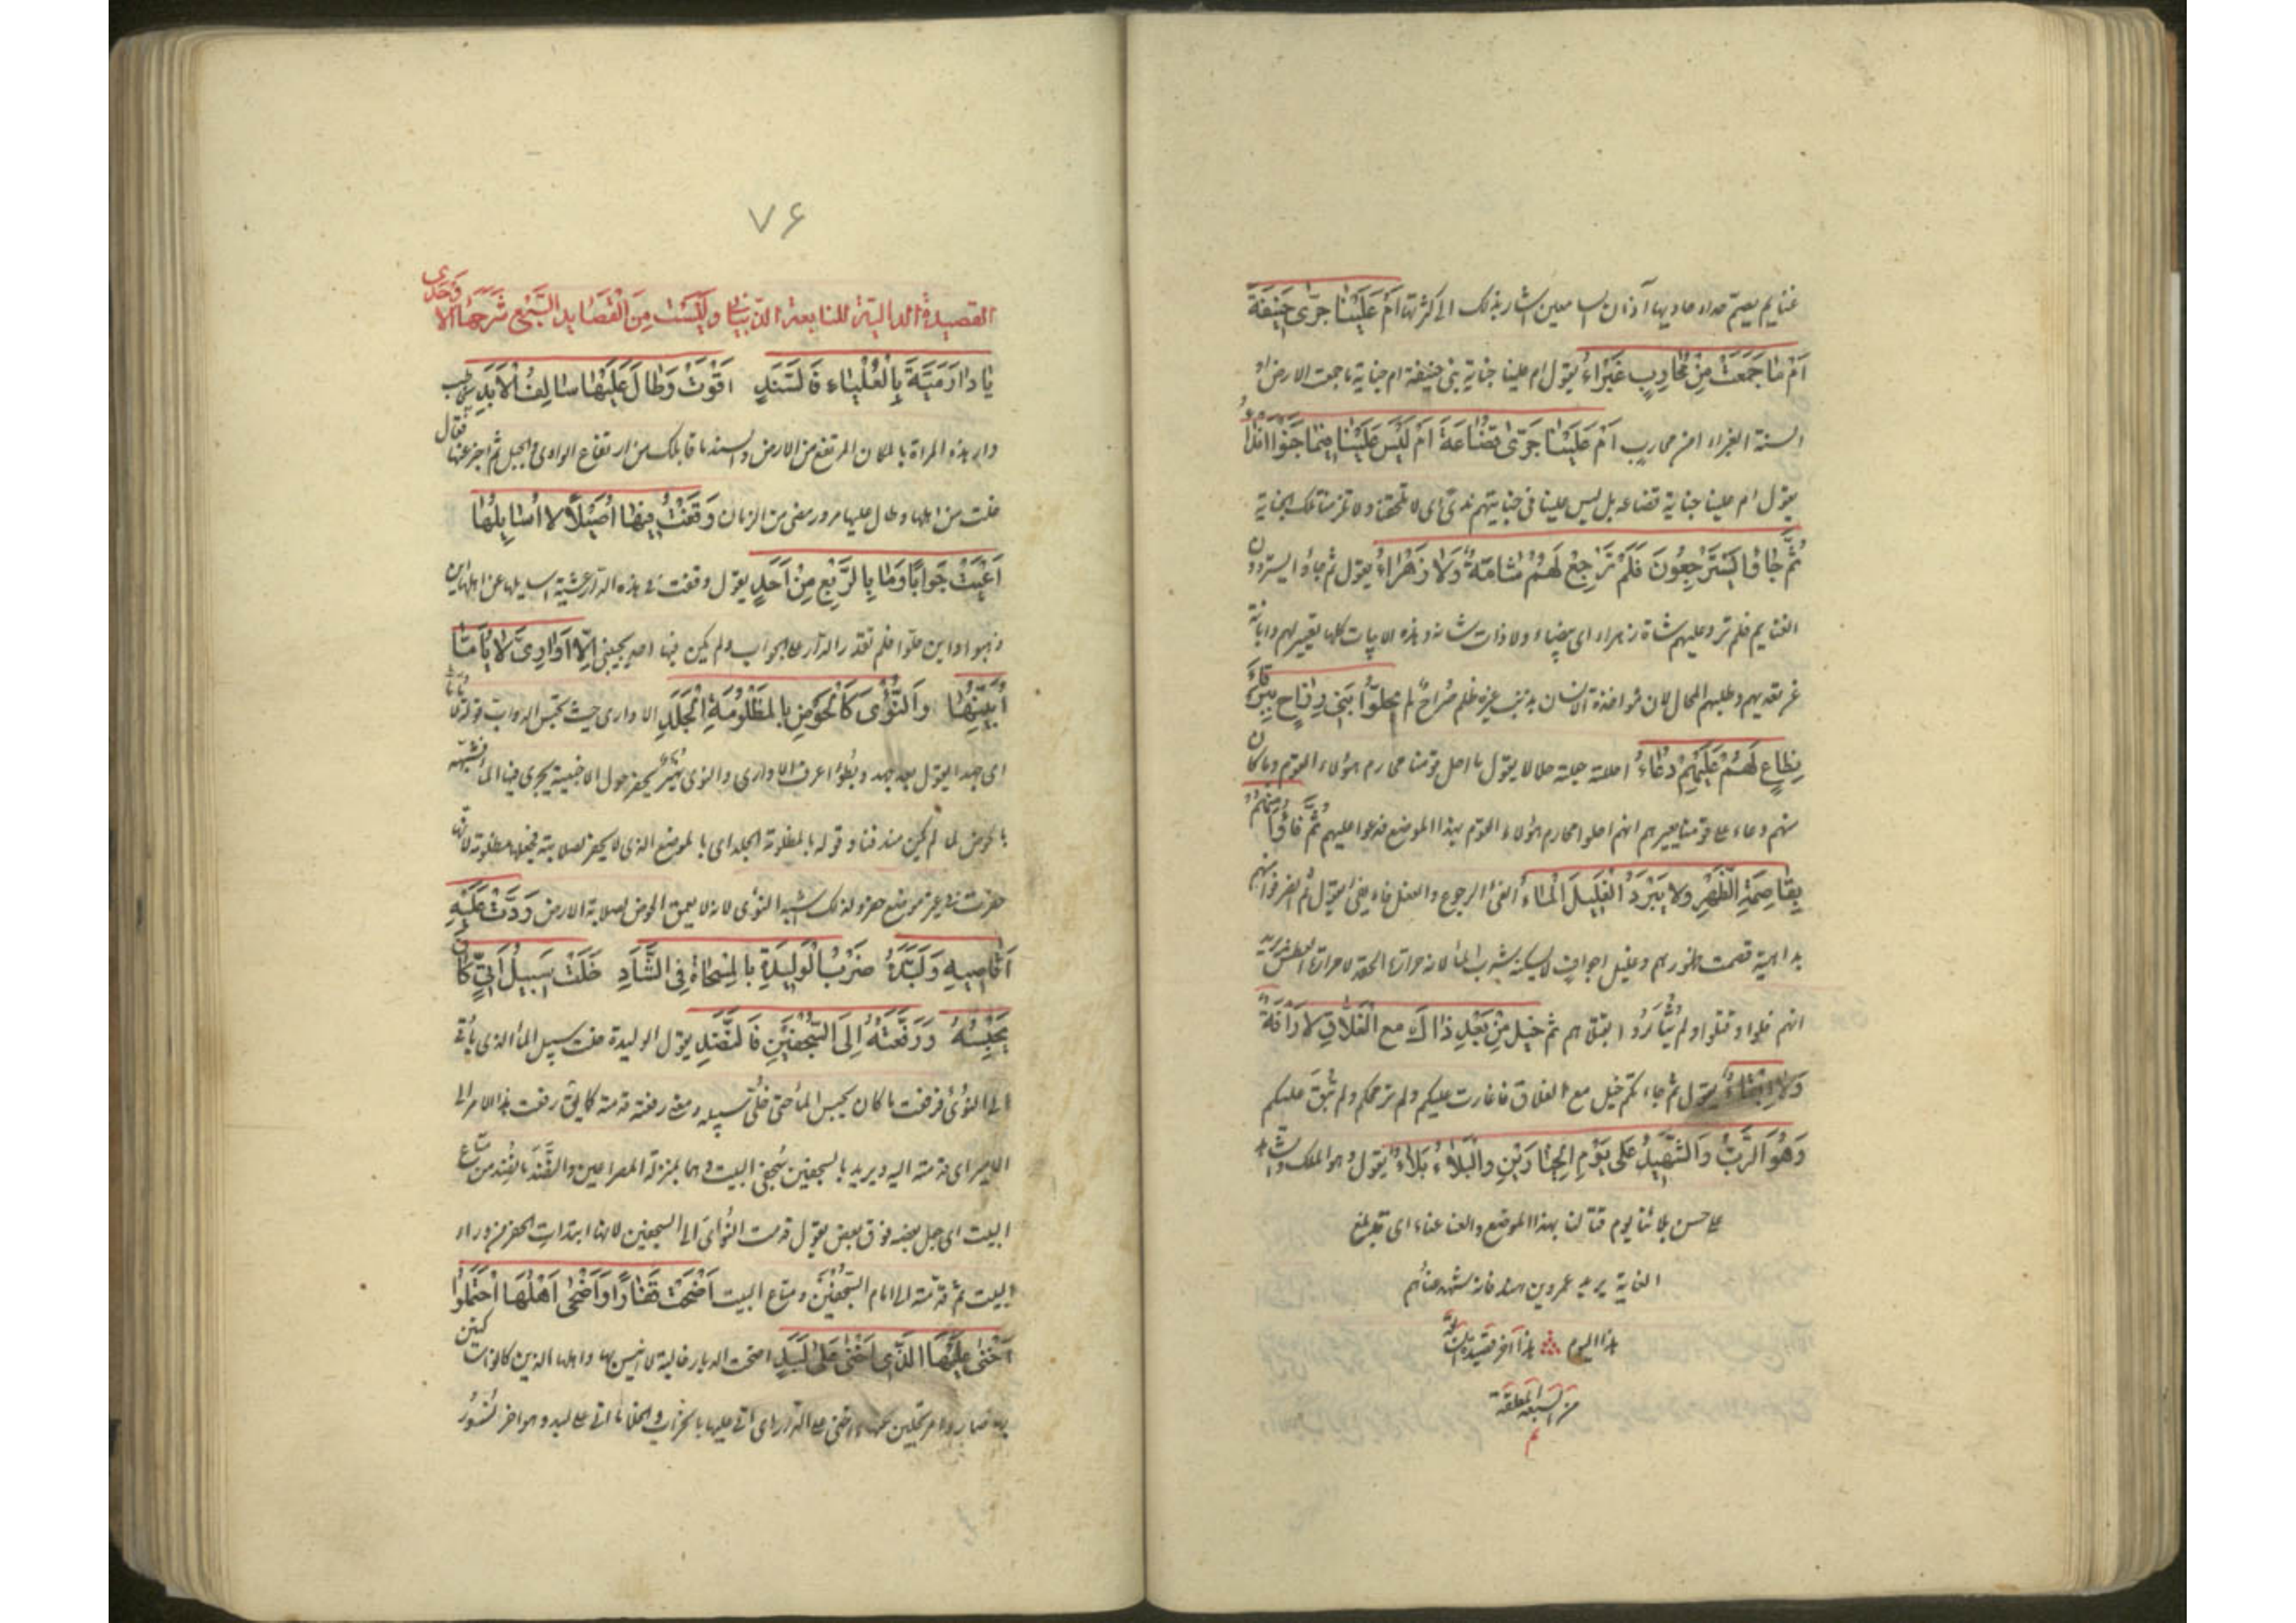 غنايم يصيح صداء حاديها آذان السامعين اشار بذلك الى كثرتها اَمْ عَلَيْنَا جَرَّى حَنِيفَةَ
اَمْ مَا جَمَعَتْ مِنْ مُحَارِبٍ غَبْرَاءُ يقول ام علينا جناية بنى حنيفة ام جناية ما جمعت الارض او
السنة الغبراء من محارب اَمْ عَلَيْنَا جَرَّى قُضَاعَةَ اَمْ لَيْسَ عَلَيْنَا فِيمَا جَنَوْا انْدَاءُ
يقول ام علينا جناية قضاعه بل ليس علينا فى جنايتهم ندى اى لا تلحقنا ولا تلزمنا تلك الجناية
ثُمَّ جَاؤُا يَسْتَرْجِعُونَ فَلَمْ تَرْجِعْ لَهُمْ شَامَةٌ وَلَا زَهْرَاءُ يقول ثم جاؤا يستردون
الغنايم فلم ترد عليهم شاة زهراء اى بيضاء ولا ذات شامة وهذه الابيات كلها تعيير لهم وابانة
لَمْ يُحِلُّوا بَنِى رِزَاحٍ بِبَرْقَاءِ
نِطَاعٍ لَهُمْ عَلَيْهِمْ دُعَاءُ احللته جعلته حلالا يقول ما احل قومنا محارم هؤلاء القوم وما كان
منهم دعاء على قومنا يعيرهم انهم احلوا محارم هؤلاء القوم بهذا الموضع فدعوا عليهم ثُمَّ فَاؤُا مِنْهُمْ
بِقَاصِمَةِ الظَّهْرِ وَلَا يَبْرُدُ الْغَلِيلَ الْمَاءُ الفئ الرجوع والفعل فاء يفئ يقول ثم انصرفوا منهم
بداهية قصمت ظهورهم وغليل اجواف لا يسكنه شرب الماء لانه حرارة الحقد لا حرارة العطش يريد
انهم فلوا وقتلوا ولم يُثأَرُوا بقتلاهم ثُمَّ خَيْلٌ مِنْ بَعْدِ ذَاكَ مَعَ الْغَلَّاقِ لَا رَأْفَةٌ
وَلَا اِبْقَاءُ يقول ثم جاءتكم خيل مع الغلاق فاغارت عليكم ولم ترحمكم ولم تبق عليكم
وَهُوَ الرَّبُّ وَالشَّهِيدُ عَلَى يَوْمِ الْحِيَارَيْنِ وَالْبَلَاءُ بَلَاءُ يقول وهو الملك والشاهد
على حسن بلائنا يوم قتالنا بهذا الموضع والعناء عناء اى قد بلغ
الغاية يريد عمرو بن هند فانه شهد عناءهم
هذا اليوم هذا آخر قصيدة
من السبعة المعلقة
م
٧۶
القصيدة الدالية للنابغة الذبيانى وليست من القصايد السبع شرحها الواحدى
يَا دَارَ مَيَّةَ بِالْعَلْيَاءِ فَالسَّنَدِ اَقْوَتْ وَطَالَ عَلَيْهَا سَالِفُ الْاَبَدِ
دار هذه المراة بالمكان المرتفع من الارض والسند ما قابلك من ارتفاع الوادى والجبل ثم اخبر عنها فقال
خلت من اهلها وطال عليها مرور مضى من الزمان وَقَفْتُ فِيهَا اُصَيْلَالًا اُسَايِلُهَا
اَعْيَتْ جَوَابًا وَمَا بِالرَّبْعِ مِنْ اَحَدٍ يقول وقفت فى هذه الدار عشية اسايلها عن اهلها اين
ذهبوا واين حلوا فلم تقدر الدار على الجواب ولم يكن فيها احد يجيبنى اِلَّا اَوَارِىَّ لَايًا مَا
اُبَيِّنُهَا وَالنُّؤْىُ كَالْحَوْضِ بِالْمَظْلُومَةِ الْجَلَدِ الاوارى حيث تحبس الدواب وقوله لايا
اى جهدا يقول بعد جهد وبطؤ اعرف الاوارى والنؤى نهير يحفر حول الاخبية يجرى فيها الماء شبهه
بالحوض وقوله بالمظلومة الجلد اى بالموضع الذى لا يحفر لصلابته فجعلها مظلومة لانها
حفرت فى غير موضع حفر ولذلك شبه النؤى لانه لا يعمق الحوض لصلابة الارض رَدَّتْ عَلَيْهِ
اَقَاصِيهِ وَلَبَّدَهُ ضَرْبُ الْوَلِيدَةِ بِالْمِسْحَاةِ فِى الثَّأَدِ خَلَّتْ سَبِيلَ اَتِىٍّ كَانَ
يَحْبِسُهُ وَرَفَّعَتْهُ اِلَى السِّجْفَيْنِ فَالنَّضَدِ يقول الوليدة خلت سبيل الماء الذى يأتى
الى النؤى فرفعت ما كان يحبس الماء حتى خلى سبيله ومعنى رفعته قدمته كما يق رفعت هذا الامر الى
الامير اى قدمته اليه ويريد بالسجفين سجفى البيت وهما بمنزلة المصراعين والنضد ما نضد من متاع
البيت اى جعل بعضه فوق بعض يقول قدمت النؤى الى السجفين لانها ابتدات الحفر من وراء
البيت ثم قدمته الى امام السجفين ومتاع البيت اَضْحَتْ قِفَارًا وَاَضْحَى اَهْلُهَا احْتَمَلُوا
اَخْنَى عَلَيْهَا الَّذِى اَخْنَى عَلَى لُبَدِ اضحت الديار خالية لا انيس بها واهلها الذين كانوا ساكنين
بها صاروا مرتحلين عنها اخنى على الدار اى اتى عليها بالخراب والجفا ما اتى على لبد وهو اخر نسور